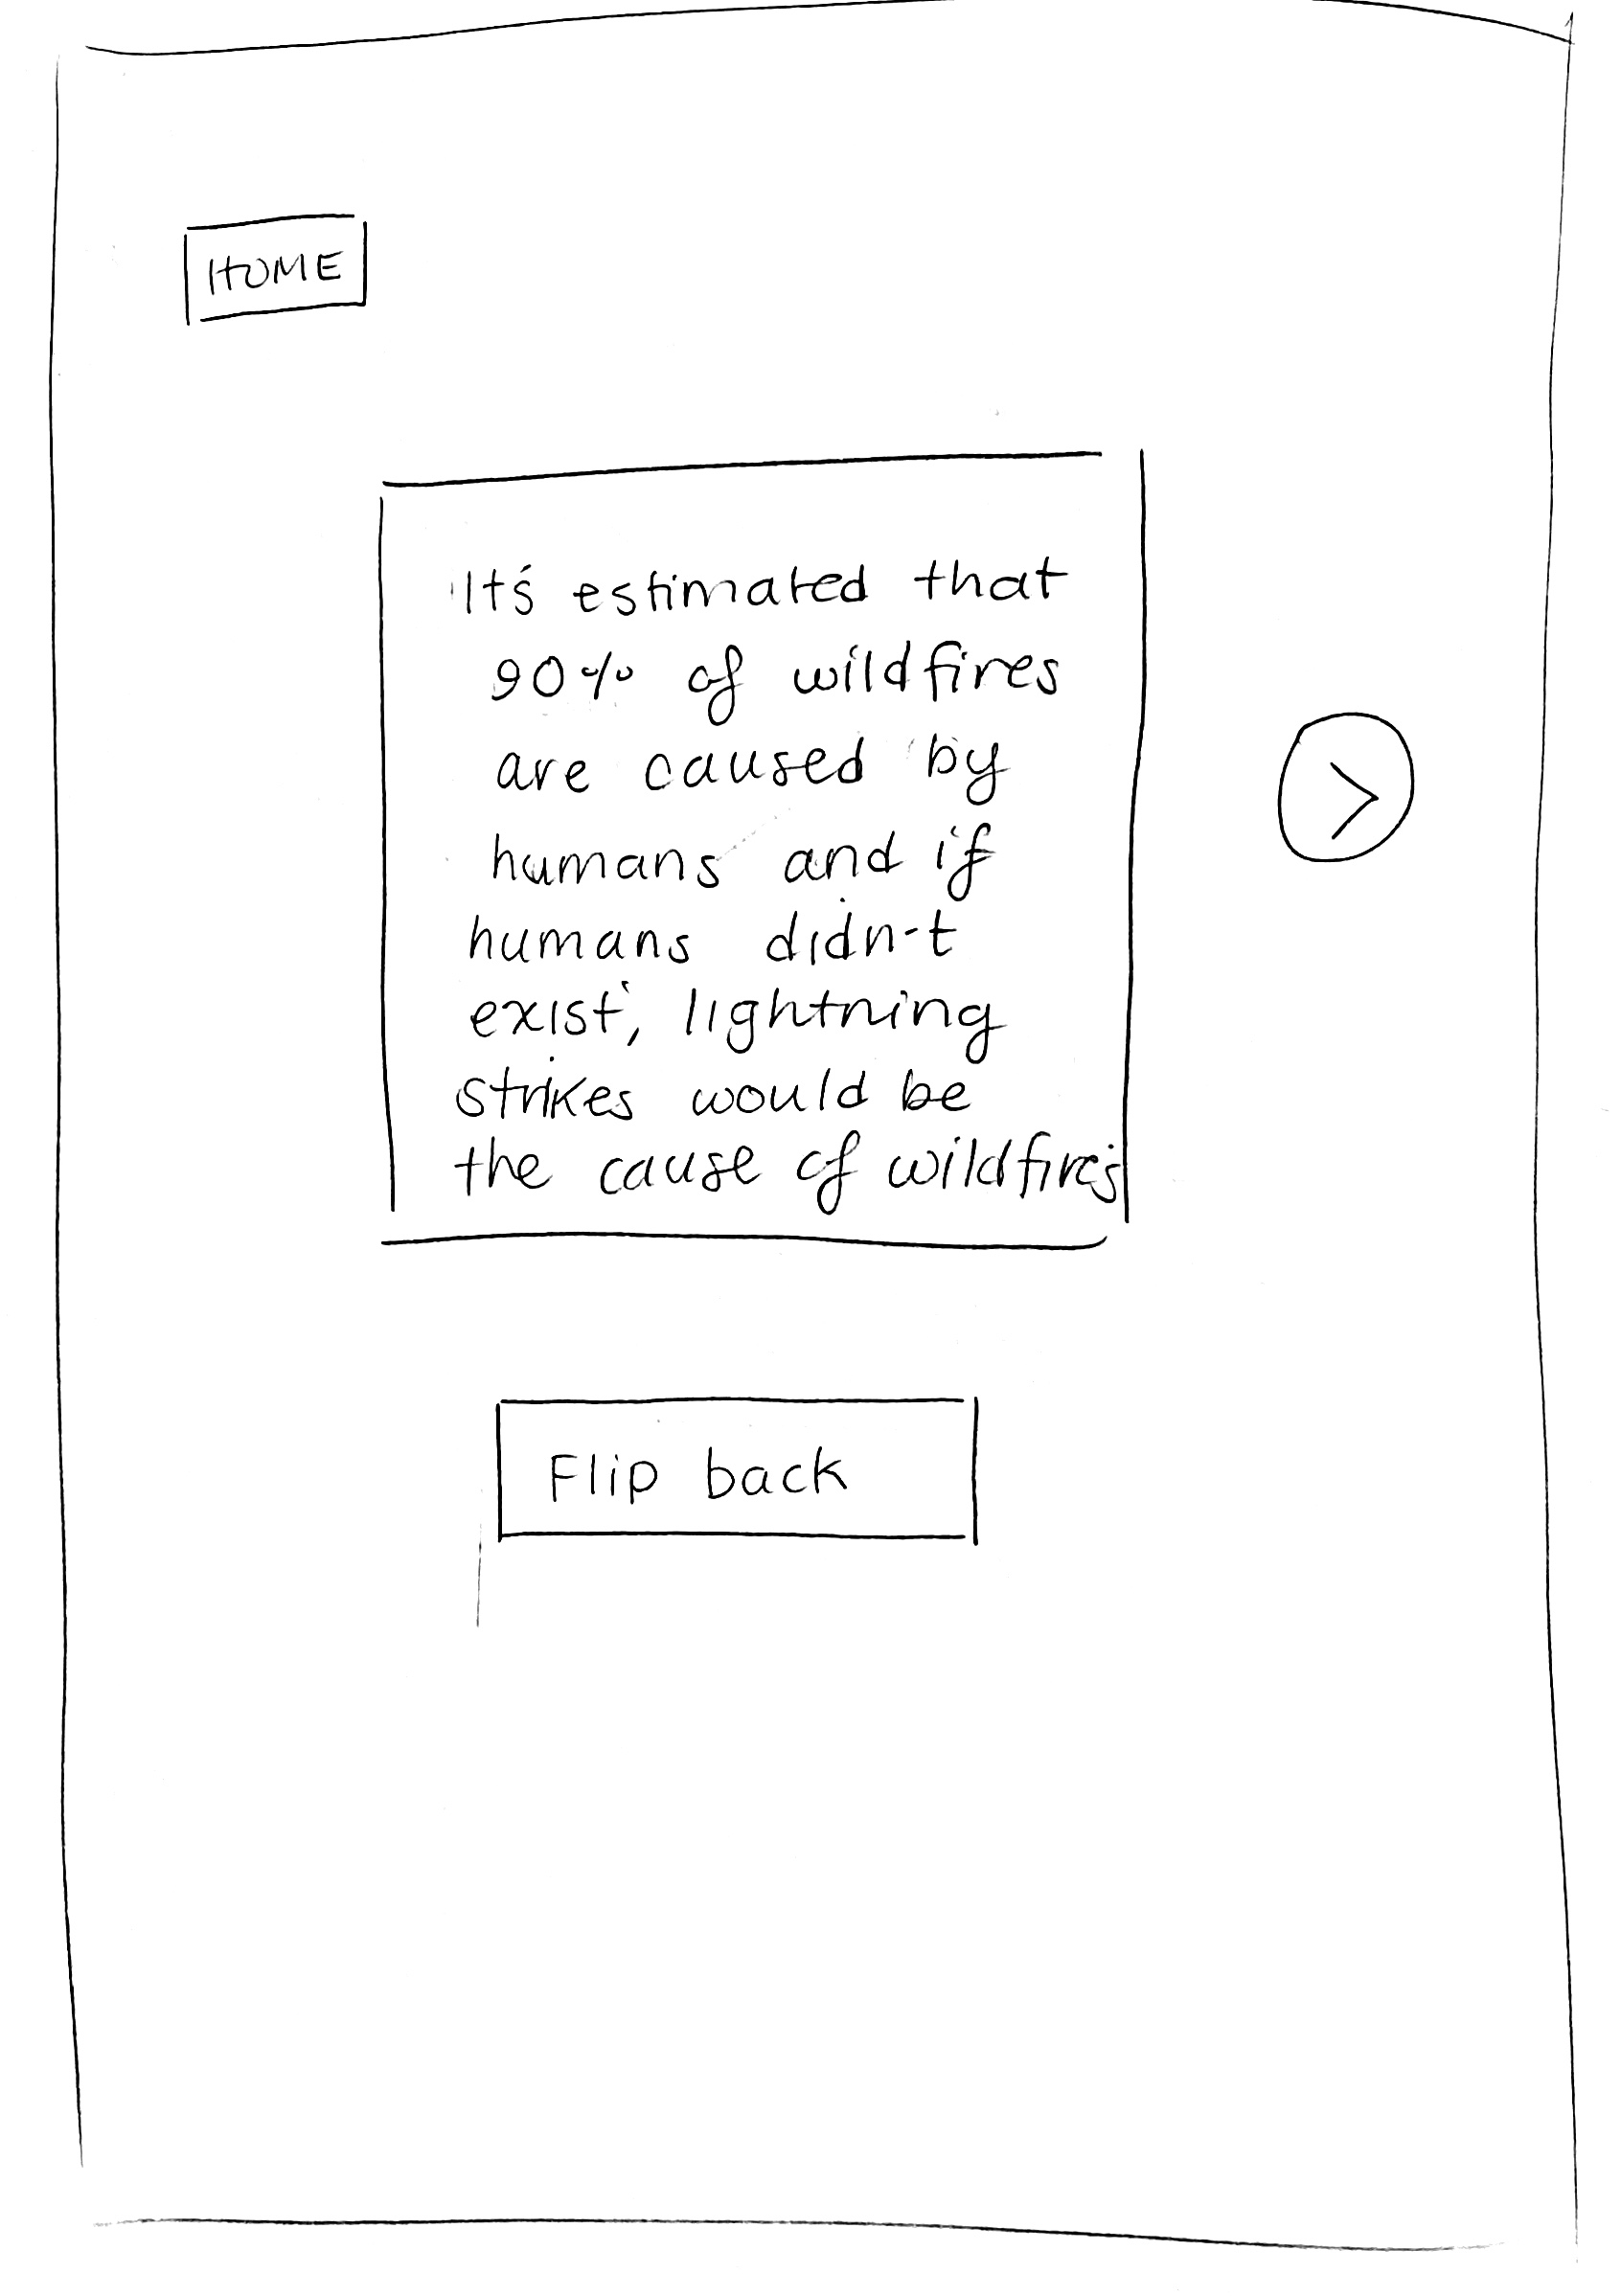 HOME
It's estimated that
90% of wildfires
are caused by
humans and if
humans didn-t
exist, lightning
strikes would be
the cause of wildfires
>
Flip back